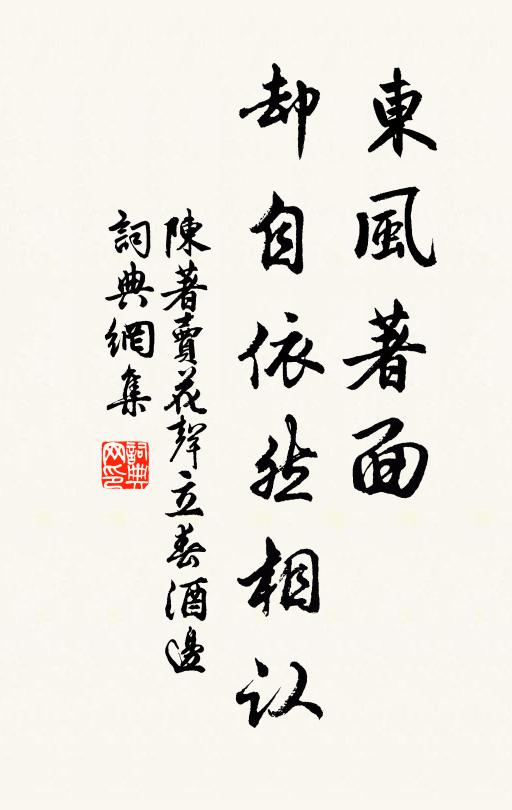 東風著面
却自依然相认
陳著賣花聲立春酒邊
詞典網集
詞典網印